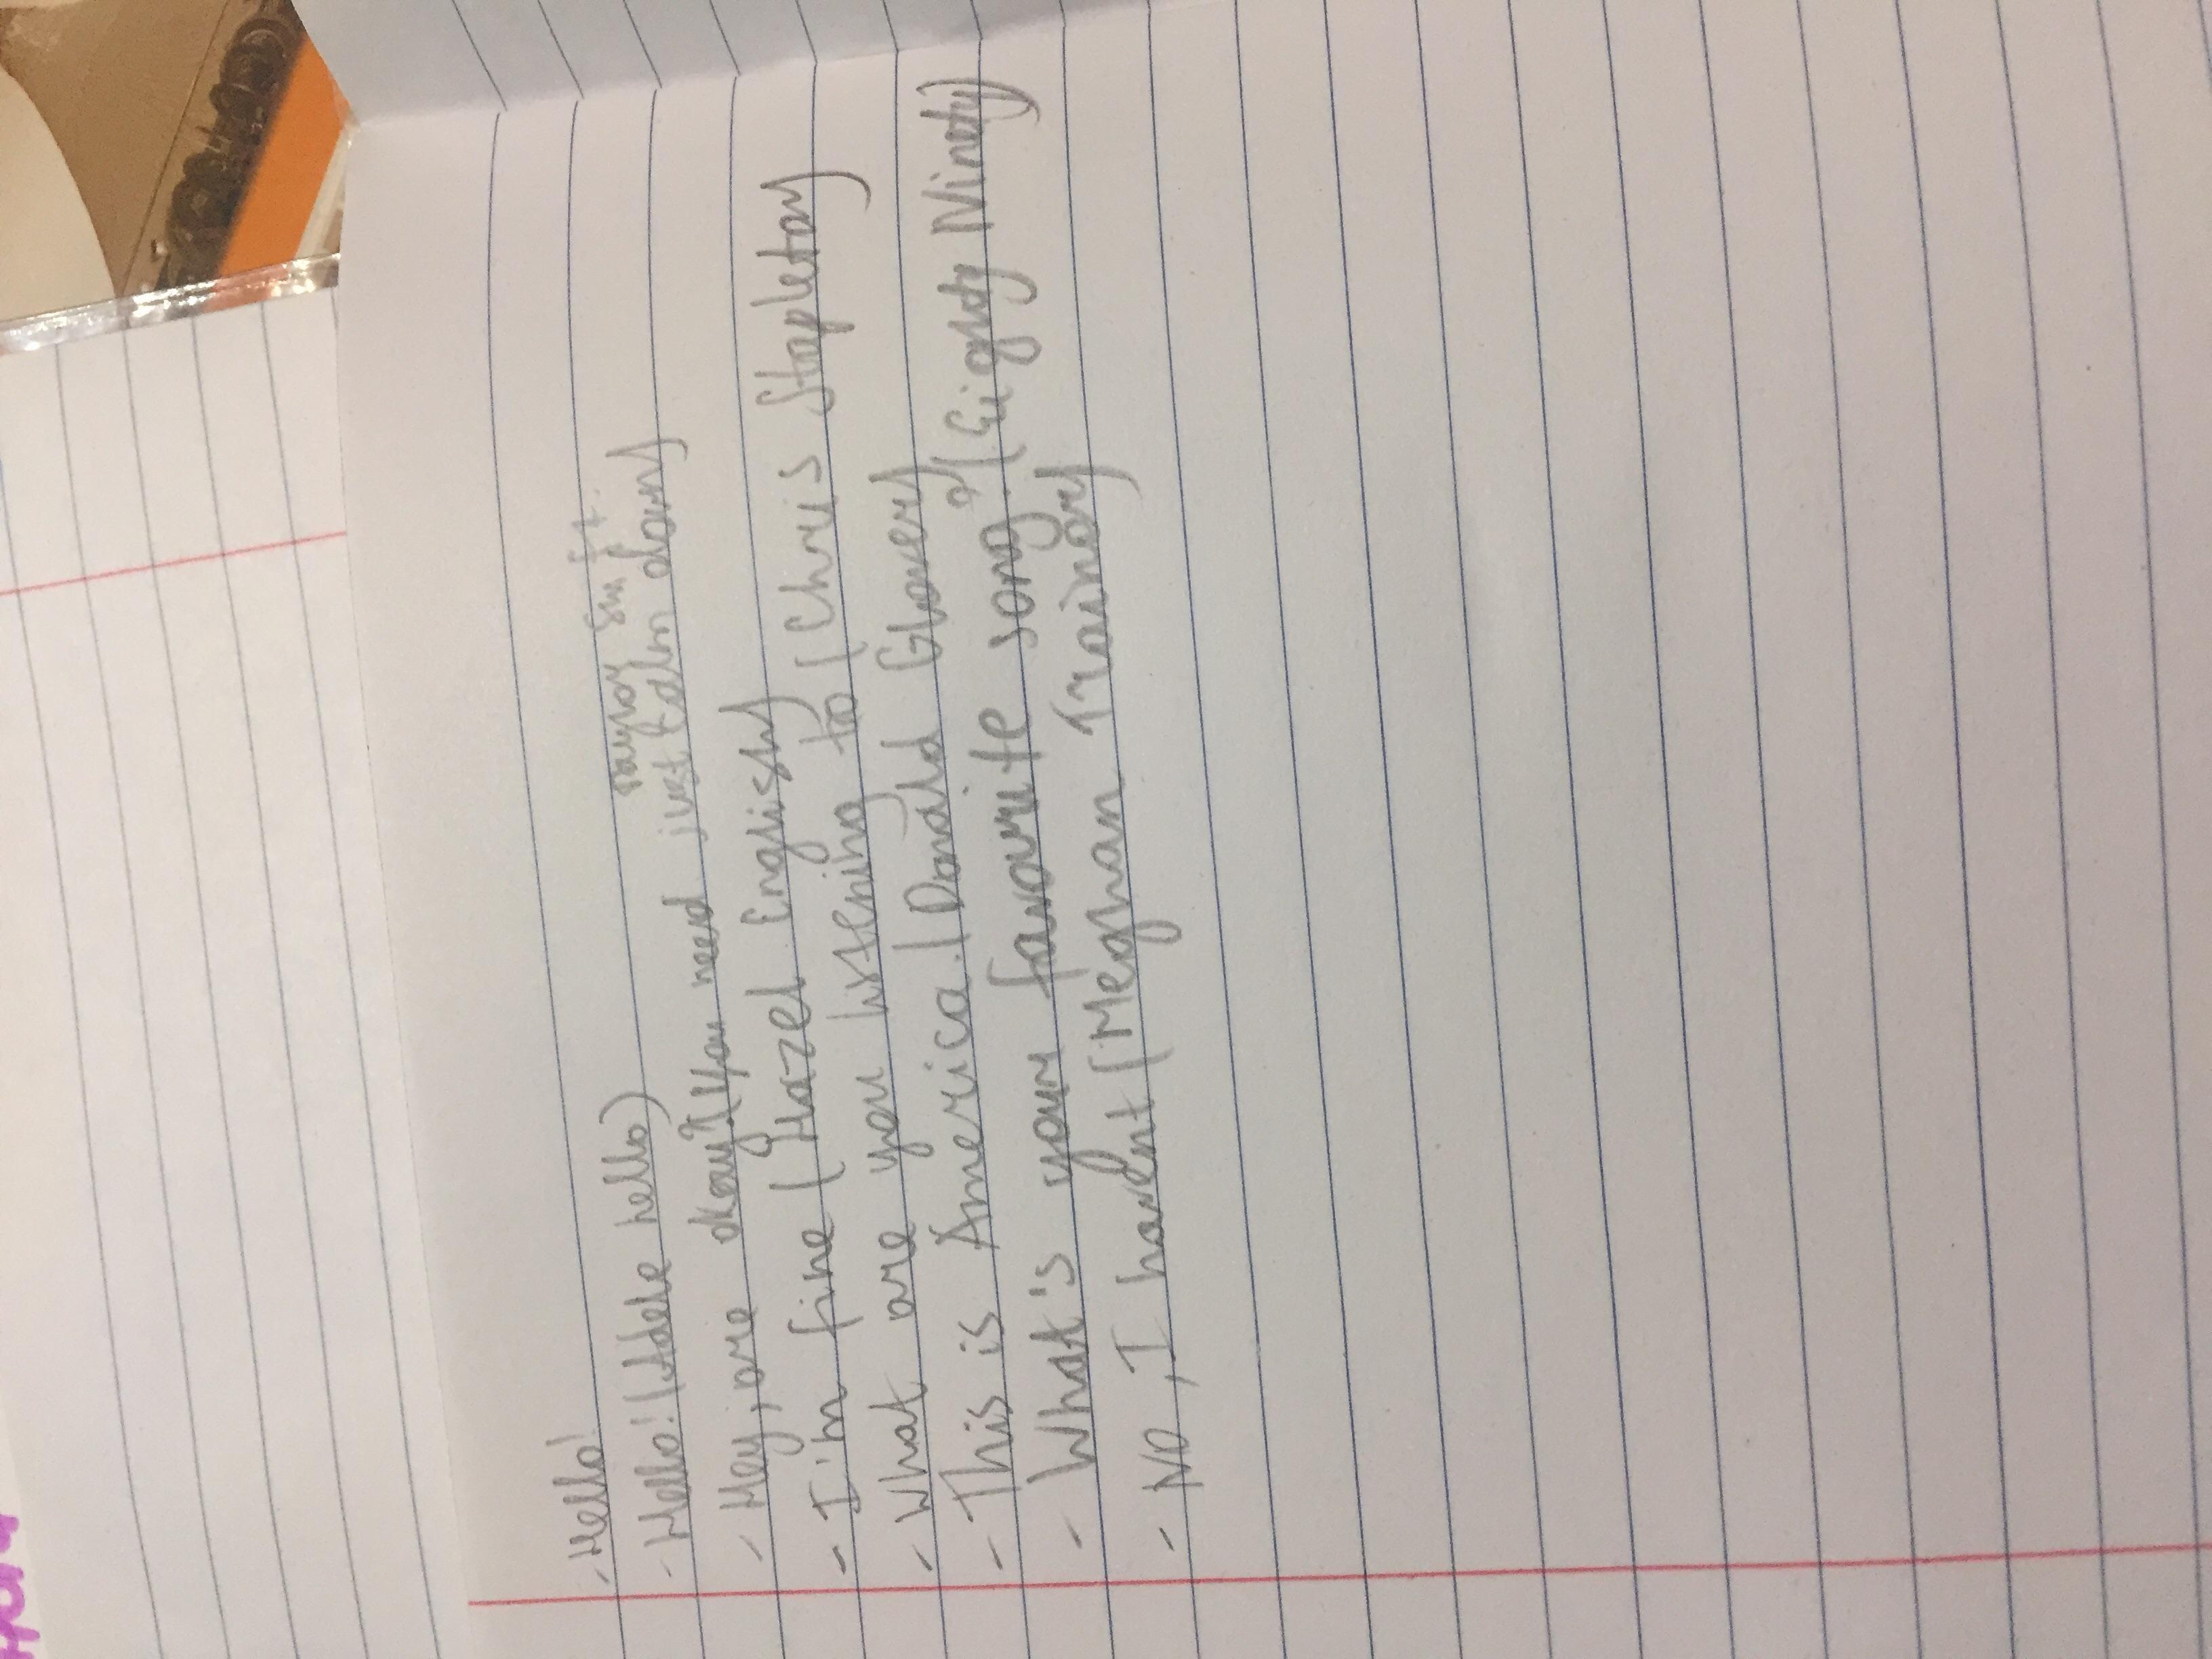 - Hello!
- Hello! (Adele hello)
Taylor Swift.
- Hey, are okay? (You need just calm down)
- I'm fine (Hazel English)
- What are you listening to (Chris Stapleton)
- This is America. (Donald Glover)
- What's your favourite song? (Eighty Ninety)
- No, I havent (Meghan Trainer)